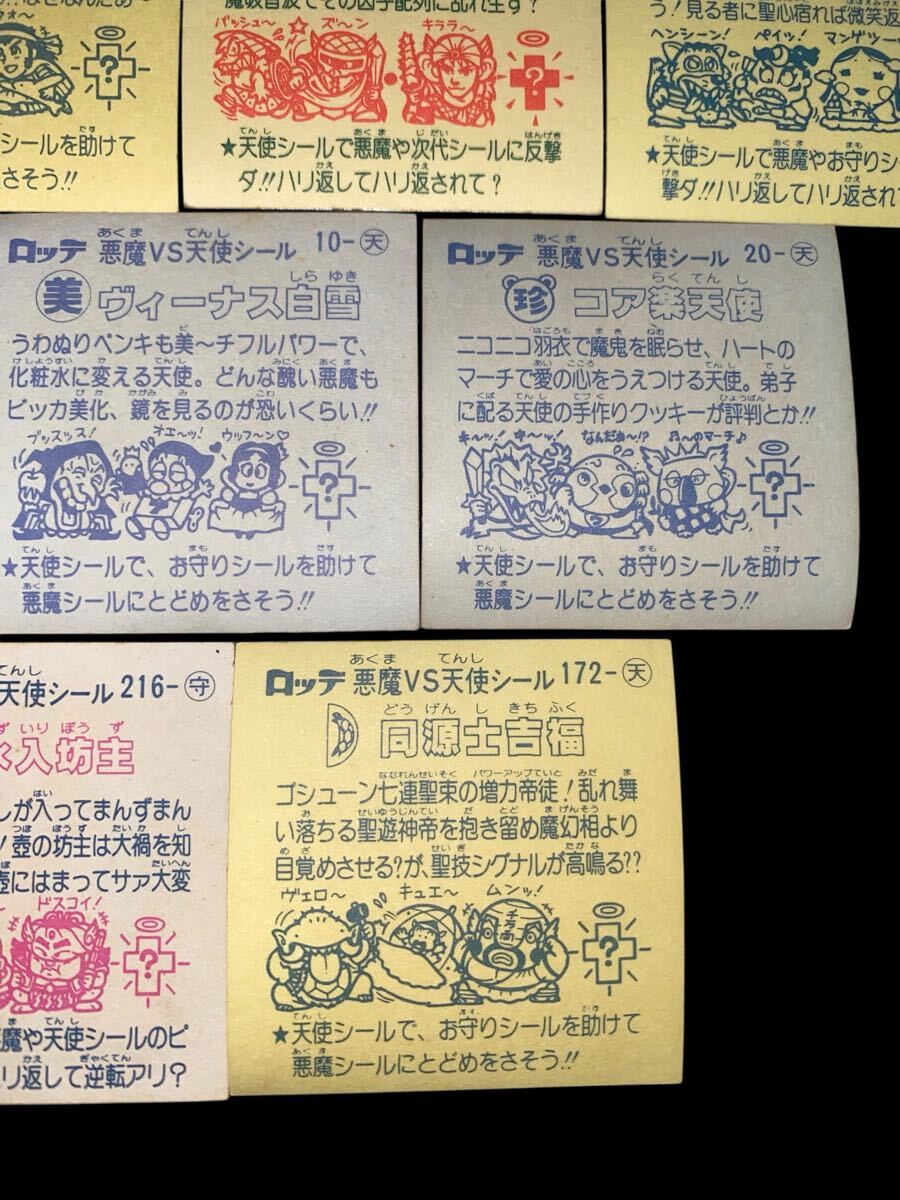 魔吸音波でその因子配列に乱れ生ず?
バッシュ〜 ズ〜ン キララ〜
?
★天使シールで悪魔や次代シールに反撃
ダ!!ハリ返してハリ返されて?
?
シールを助けて
さそう!!
う!見る者に聖心宿れば微笑返
ヘンシーン! ペイッ! マンゲツーッ
★天使シールで悪魔やお守りシ
撃ダ!!ハリ返してハリ返され
ロッテ 悪魔VS天使シール 10-天
美 ヴィーナス白雪
うわぬりペンキも美〜チフルパワーで、
化粧水に変える天使。どんな醜い悪魔も
ビッカ美化、鏡を見るのが恐いくらい!!
ブッスッス! オエ〜ッ! ウッフ〜ン♡
?
★天使シールで、お守りシールを助けて
悪魔シールにとどめをさそう!!
ロッテ 悪魔VS天使シール 20-天
珍 コア楽天使
ニコニコ羽衣で魔鬼を眠らせ、ハートの
マーチで愛の心をうえつける天使。弟子
に配る天使の手作りクッキーが評判とか!!
キ〜ッ! キ〜ッ! なんだぬ〜!? ♫〜のマーチ♪
?
★天使シールで、お守りシールを助けて
悪魔シールにとどめをさそう!!
天使シール 216-守
入坊主
しが入ってまんずまん
!壺の坊主は大禍を知
壺にはまってサァ大変
ドスコイ!
?
魔や天使シールのピ
リ返して逆転アリ?
ロッテ 悪魔VS天使シール 172-天
同源士吉福
ゴシューン七連聖束の増力帝徒!乱れ舞
い落ちる聖遊神帝を抱き留め魔幻相より
目覚めさせる?が、聖技シグナルが高鳴る??
ヴェロ〜 キュエ〜 ムンッ!
?
★天使シールで、お守りシールを助けて
悪魔シールにとどめをさそう!!